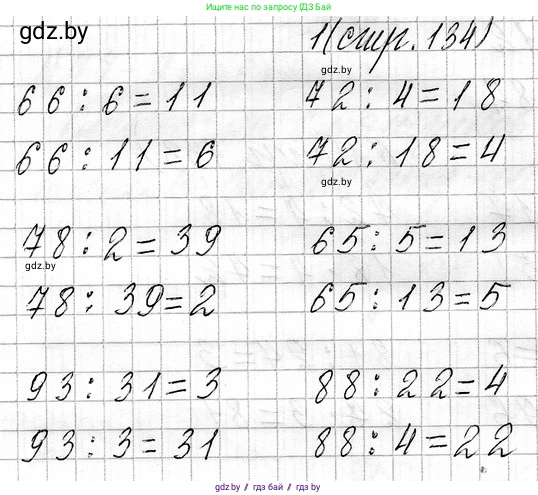 Ищите нас по запросу (ГДЗ Бай
gdz.by
1(стр. 134)
gdz.by
66 : 6 = 11 72 : 4 = 18
66 : 11 = 6 72 : 18 = 4
gdz.by
78 : 2 = 39 65 : 5 = 13
gdz.by
78 : 39 = 2 65 : 13 = 5
93 : 31 = 3 88 : 22 = 4
93 : 3 = 31 88 : 4 = 22
gdz.by / гдз бай / гдз by